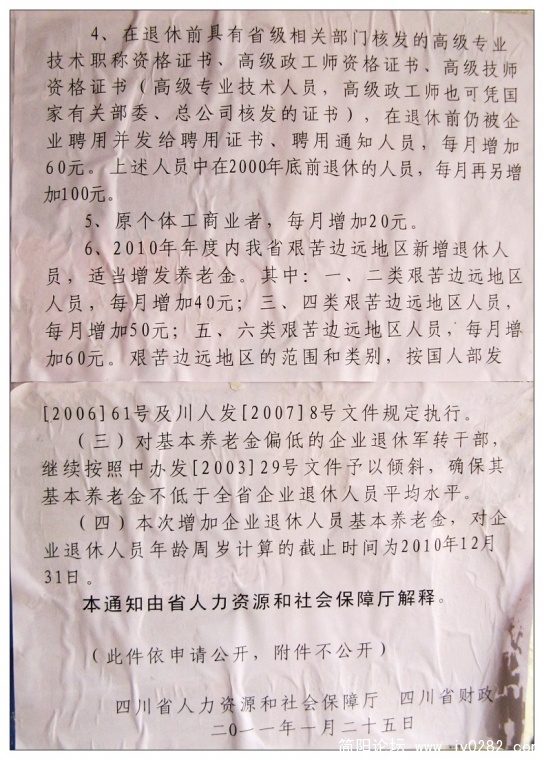 4、在退休前具有省级相关部门核发的高级专业
技术职称资格证书、高级政工师资格证书、高级技师
资格证书（高级专业技术人员，高级政工师也可凭国
家有关部委、总公司核发的证书），在退休前仍被企
业聘用并发给聘用证书、聘用通知人员，每月增加
60元。上述人员中在2000年底前退休的人员，每月再另增
加100元。
5、原个体工商业者，每月增加20元。
6、2010年年度内我省艰苦边远地区新增退休人
员，适当增发养老金。其中：一、二类艰苦边远地区
人员，每月增加40元；三、四类艰苦边远地区人员，
每月增加50元；五、六类艰苦边远地区人员，每月增
加60元。艰苦边远地区的范围和类别，按国人部发
[2006]61号及川人发[2007]8号文件规定执行。
（三）对基本养老金偏低的企业退休军转干部，
继续按照中办发[2003]29号文件予以倾斜，确保其
基本养老金不低于全省企业退休人员平均水平。
（四）本次增加企业退休人员基本养老金，对企
业退休人员年龄周岁计算的截止时间为2010年12月
31日。
本通知由省人力资源和社会保障厅解释。
（此件依申请公开，附件不公开）
四川省人力资源和社会保障厅 四川省财政
二〇一一年一月二十五日
简阳论坛 www.jy0282.com